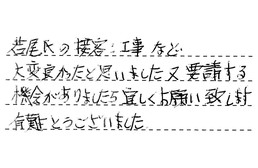 若尾氏の接客、工事など、
大変良かったと思いました又要請する
機会がありましたら宜しくお願い致します
有難とうございました